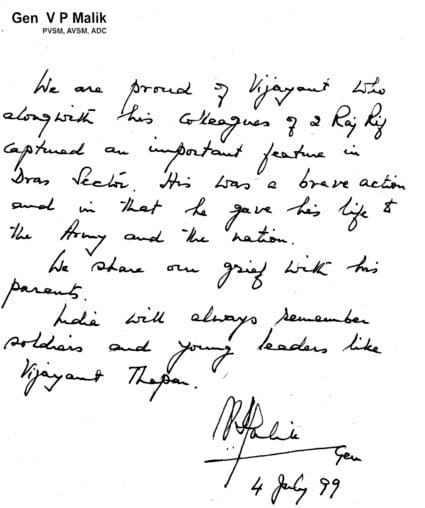 Gen V P Malik
PVSM, AVSM, ADC
We are proud of Vijayant who
alongwith his colleagues of 2 Raj Rif
captured an important feature in
Dras Sector. His was a brave action
and in that he gave his life to
the Army and the nation.
We share our grief with his
parents.
India will always remember
soldiers and young leaders like
Vijayant Thapar.
VPMalik
Gen
4 July 99